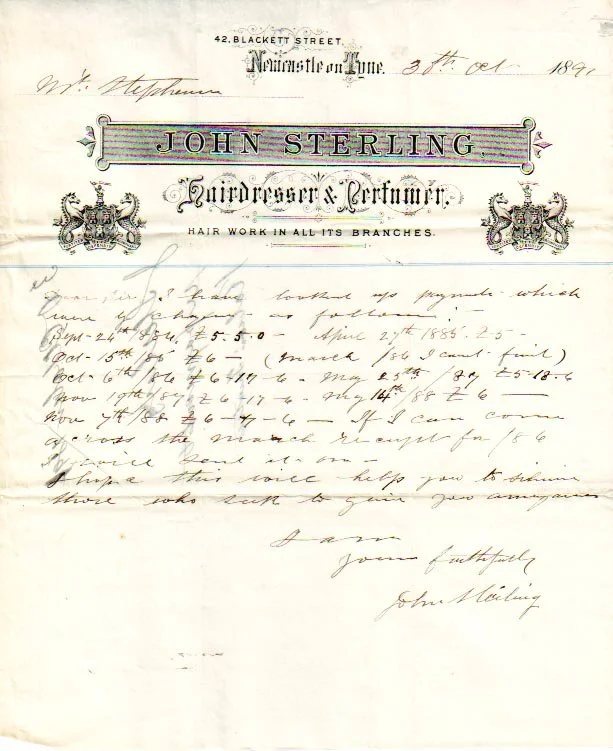 42, BLACKETT STREET.
Newcastle on Tyne. 30th Oct 1891
Mr. Stephenson
JOHN STERLING,
Hairdresser & Perfumer.
HAIR WORK IN ALL ITS BRANCHES.
Dear Sir, I have looked up payments which
were as follows:-
Sept- 24th 1884, £5.5.0 - April 27th 1885. £5-
Oct- 15th/85 £6 - (March /86 I cant find)
Oct- 6th /86 £6-17-6 - May 25th /87 £5-18.6
Nov 19th/87 £6-17-6 - May 14th/88 £6-
Nov 7th/88 £6-4-6 - If I can come
across the March receipt for /86
I will send it on -
I hope this will help you to
those who seek to give you annoyance
I am
yours faithfully
John Sterling